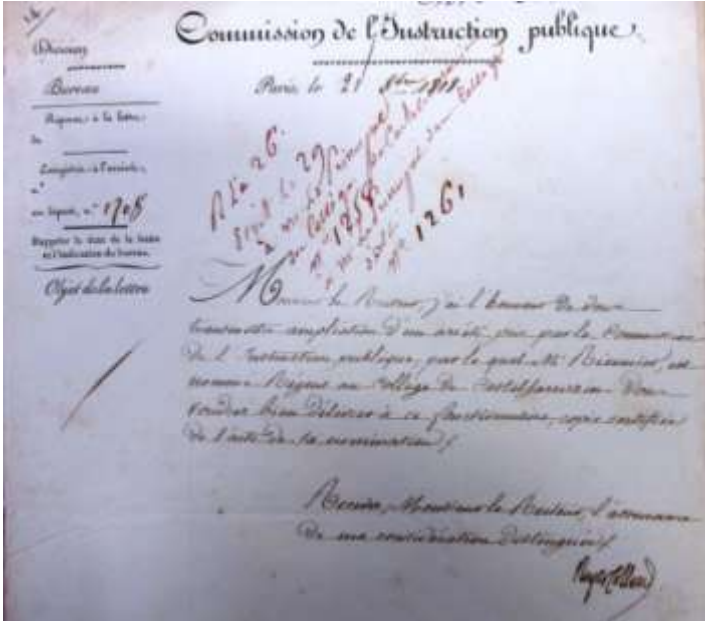 Commission de l'Instruction publique.
Division
Bureau
Réponse à la lettre
du
Enregistrée à l'arrivée,
n.°
au départ, n.° 1708
Rappeler la date de la lettre
et l'indication du bureau.
Objet de la lettre
Paris, le 21 8bre 1818
R le 26.
le 29
à M. le Principal
du Collège
n.° 1258
n.° 1261
Monsieur le Recteur, j'ai l'honneur de vous
transmettre ampliation d'un arrêté pris par la Commission
de l'Instruction publique, par le quel M. est
nommé Régent au Collège de Castelsarrazin. Vous
voudrez bien délivrer à ce fonctionnaire, copie certifiée
de l'acte de sa nomination.
Recevez, Monsieur le Recteur, l'assurance
de ma considération distinguée.
Royer Collard